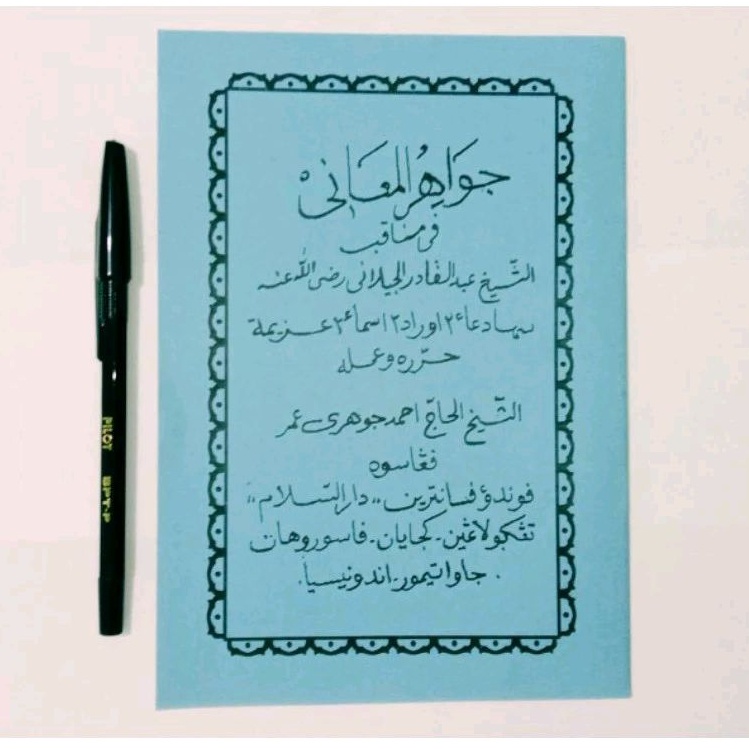 جَوَاهِرُ المَعَانِىْ
فى مناقب
الشّيخ عبد القادر الجيلانى رضى اللّه عنه
دعاء٢ اوراد٢ اسماء٢ عزيمة
حرّره وعمله
الشّيخ الحاجّ احمد جوهرى عمر
ڤڠاسوه
ڤوندوء ڤسانترين ,,دار السّلام,,
تڠݢولاڠين - كجايان - ڤاسوروهان
جاوا تيمور - اندونيسيا .
PILOT
BPT-P